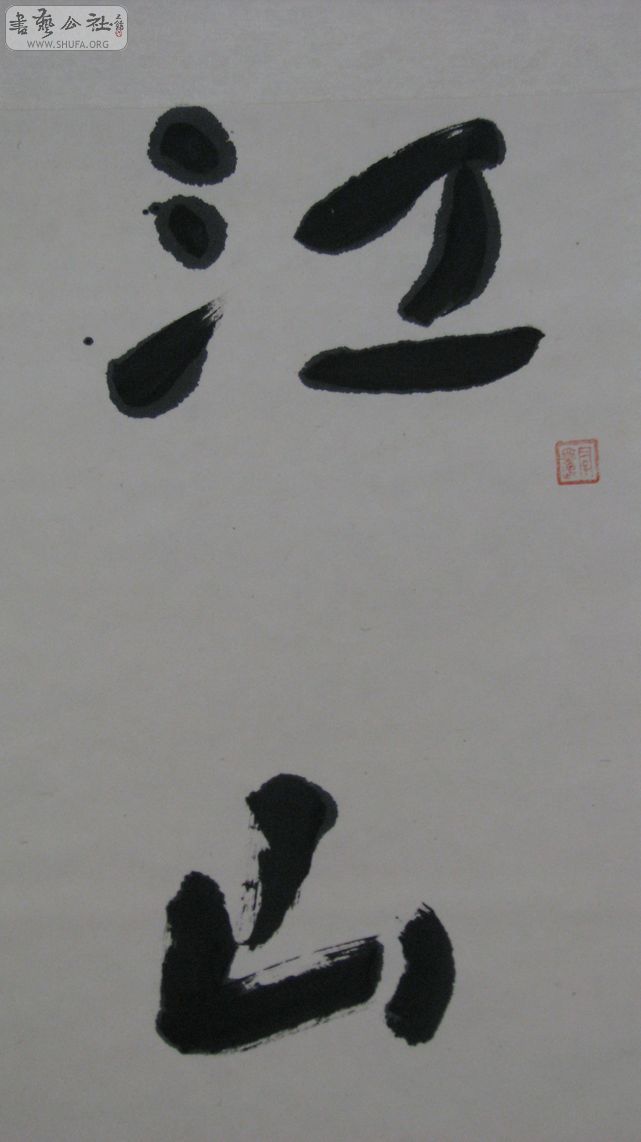 書藝公社
WWW.SHUFA.ORG
江
山